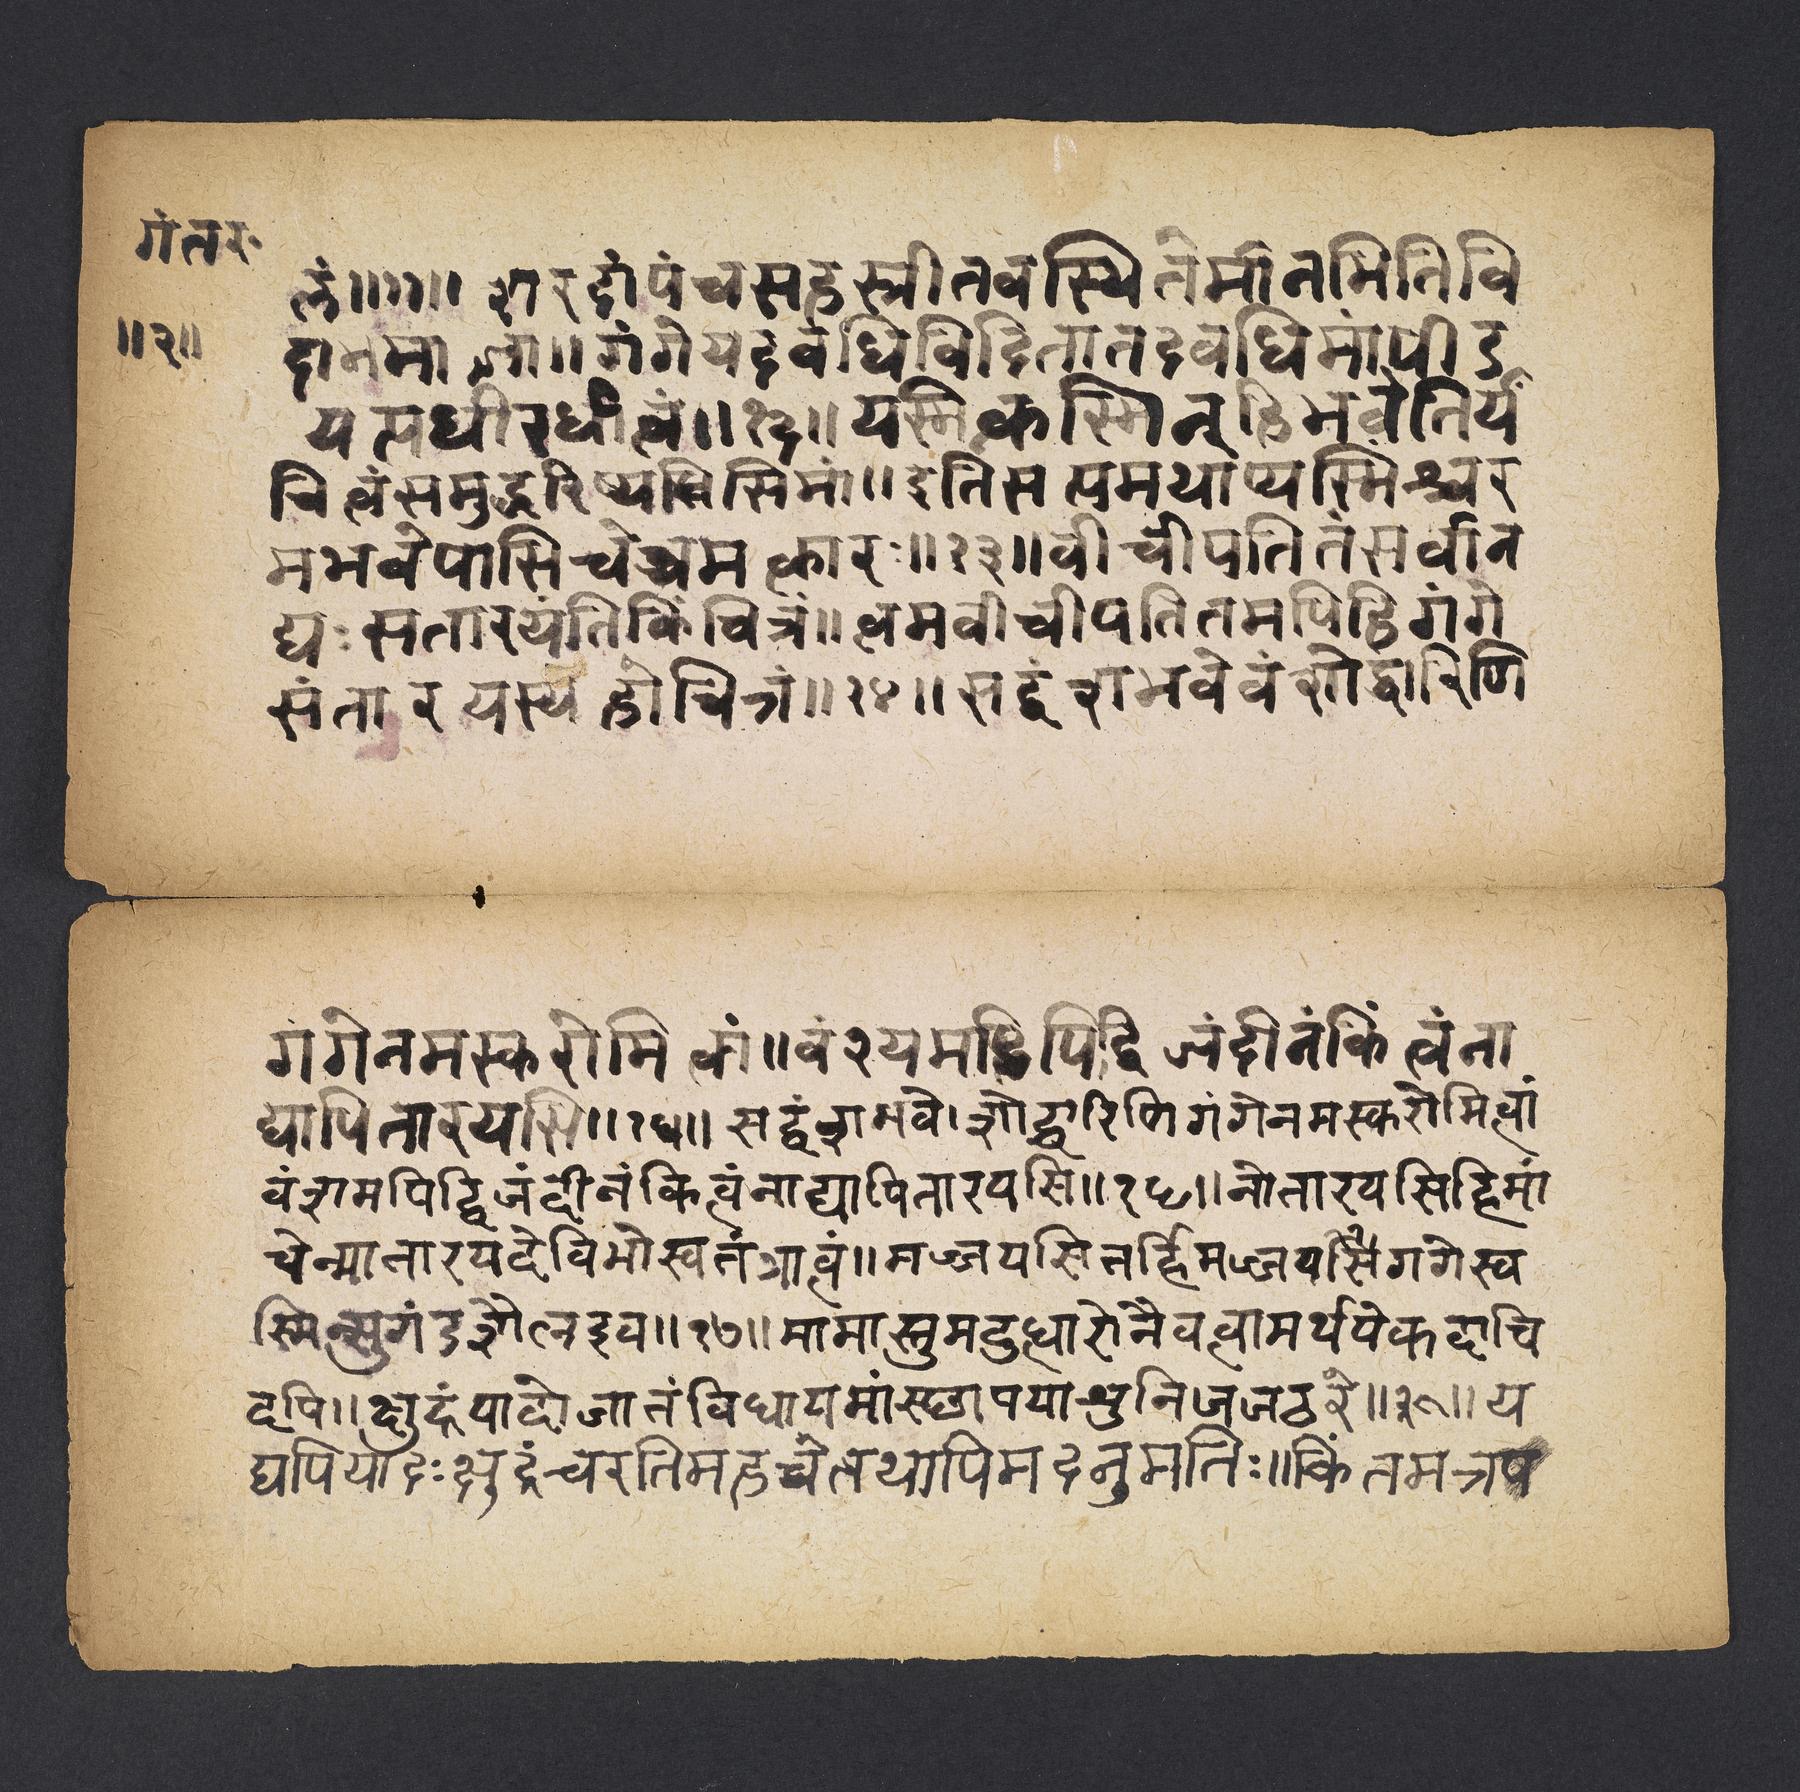 गंतर॰
॥३॥
त्वं॥११॥ शरदांपंचसहस्त्रीतवस्थितेर्मानमितिवि
दानमाता॥गंगेयदवधिविदितातदवधिमांपीड
यत्पधीरधीत्वं॥१२॥यस्मिकस्मिन्हिभवेतिर्य
चित्वंसमुद्धरिष्यसिसिमां॥इतिसत्पमथाप्यस्मिंश्चर
मभवेपासिचेच्चमत्कारः॥१३॥वीचीपतितंसर्वान
द्यःसतारयंतिकिंचित्रं॥त्वमवीचीपतितमपिहिगंगे
संतारयस्यहोचित्रं॥१४॥सद्वंशभवेवंशोद्धारिणि
गंगेनमस्करोमित्वां॥वंशयमहिपिद्विजंदीनंकिंत्वंना
द्यापितारयसि॥१५॥सद्वंशभवे।शोद्धारिणिगंगेनमस्करोमित्वां
वंशमपिद्विजंदीनंकित्वंनाद्यापितारयसि॥१६॥नोतारयसिहिमां
चेन्मातारयदेविभोस्वतंत्रात्वं॥मज्जयसितर्हिमज्जयसैगगेस्व
स्मिन्सुगंडशैलइव॥१७॥मामास्तुमदुद्धारोनैवत्वामर्थयेकदाचि
दपि॥क्षुद्रंपादोजातंविधायमांस्छापयाश्रुनिजजठरे॥१८॥य
द्यपियादःक्षुद्रंचरतिमहच्चेतथापिमदनुमतिः॥किंतमत्रप